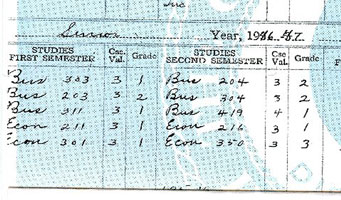 Junior Year, 1986-87.
STUDIES FIRST SEMESTER Cse. Val. Grade STUDIES SECOND SEMESTER Cse. Val. Grade
Bus 303 3 1 Bus 204 3 2
Bus 203 3 2 Bus 304 3 2
Bus 311 3 1 Bus 419 4 1
Econ 211 3 1 Econ 216 3 1
Econ 301 3 1 Econ 350 3 3